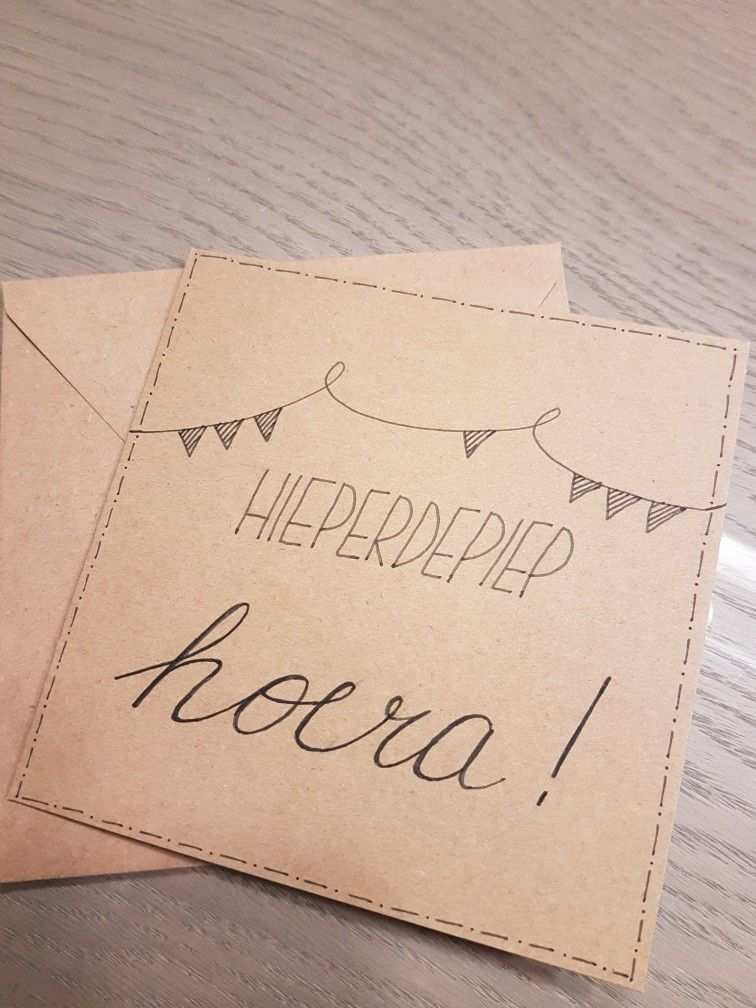 HIEPERDEPIEP
hoera!